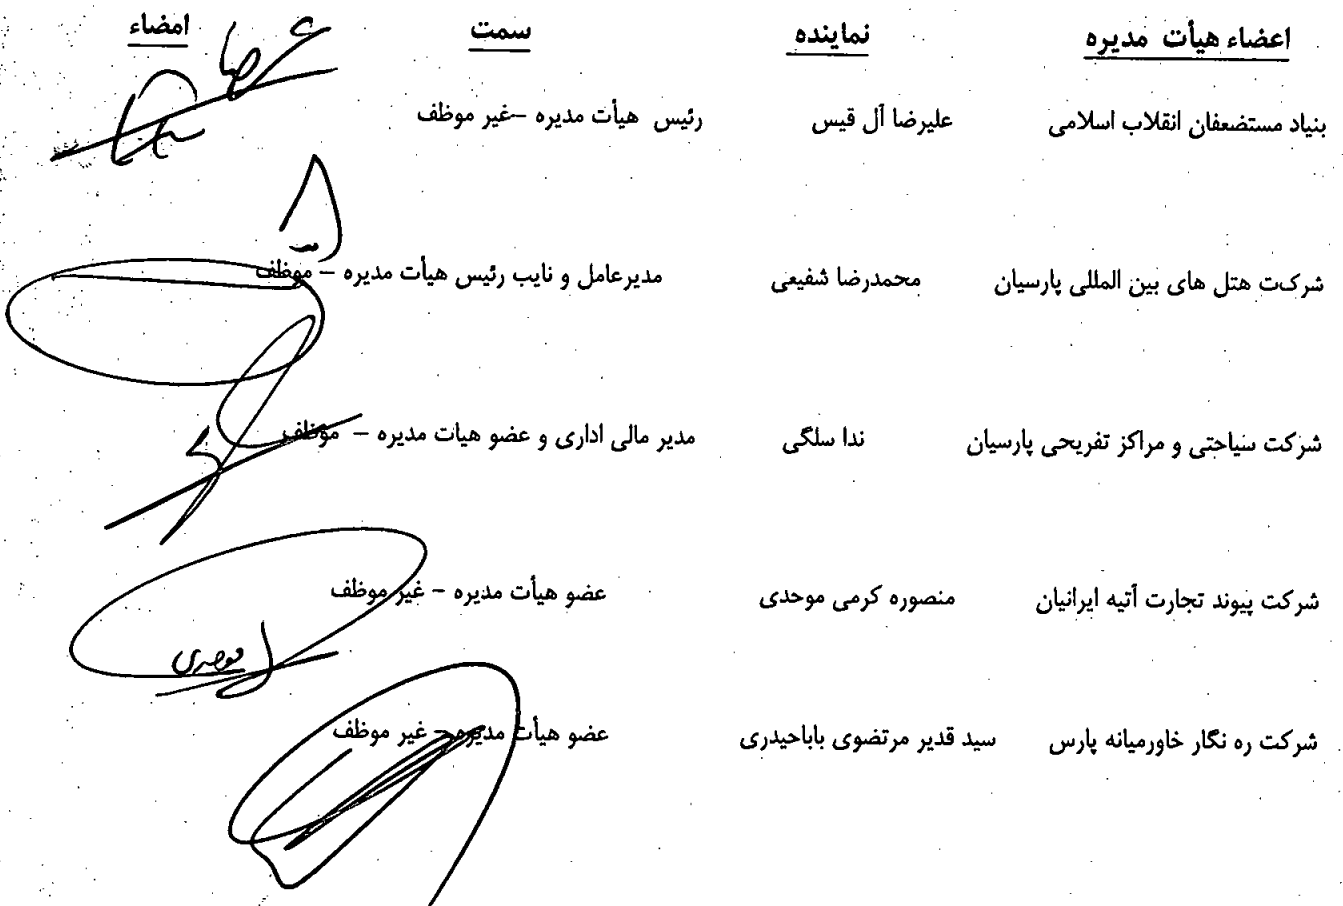 اعضاء هیأت مدیره نماینده سمت امضاء
بنیاد مستضعفان انقلاب اسلامی علیرضا آل قیس رئیس هیأت مدیره –غیر موظف
شرکت هتل های بین المللی پارسیان محمدرضا شفیعی مدیرعامل و نایب رئیس هیأت مدیره – موظف
شرکت سیاحتی و مراکز تفریحی پارسیان ندا سلگی مدیر مالی اداری و عضو هیات مدیره – موظف
شرکت پیوند تجارت آتیه ایرانیان منصوره کرمی موحدی عضو هیأت مدیره – غیر موظف
شرکت ره نگار خاورمیانه پارس سید قدیر مرتضوی باباحیدری عضو هیأت مدیره – غیر موظف